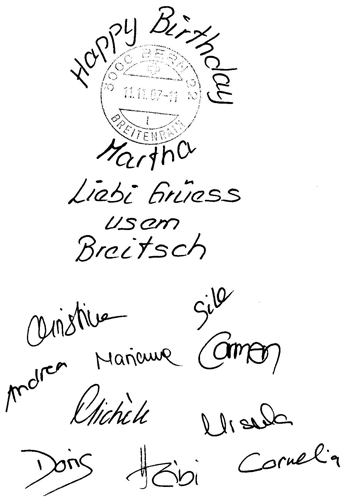 Happy Birthday
3000 BERN 22
11.11.97-11
1
BREITENRAIN
Martha
Liebi Grüess
usem
Breitsch
Christine
Silv
Andrea Marianne Carmen
Michèle
Ursula
Doris Heibi Cornelia